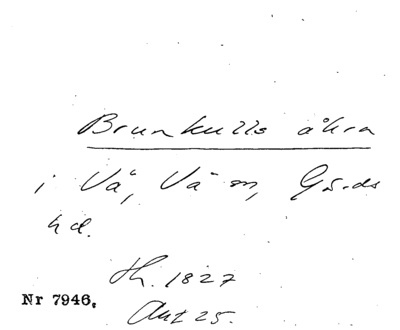 Brunkulls åkra
i Vä, Vä sn, Gärds
hd.
Th. 1827
Nr 7946.
Akt 25.